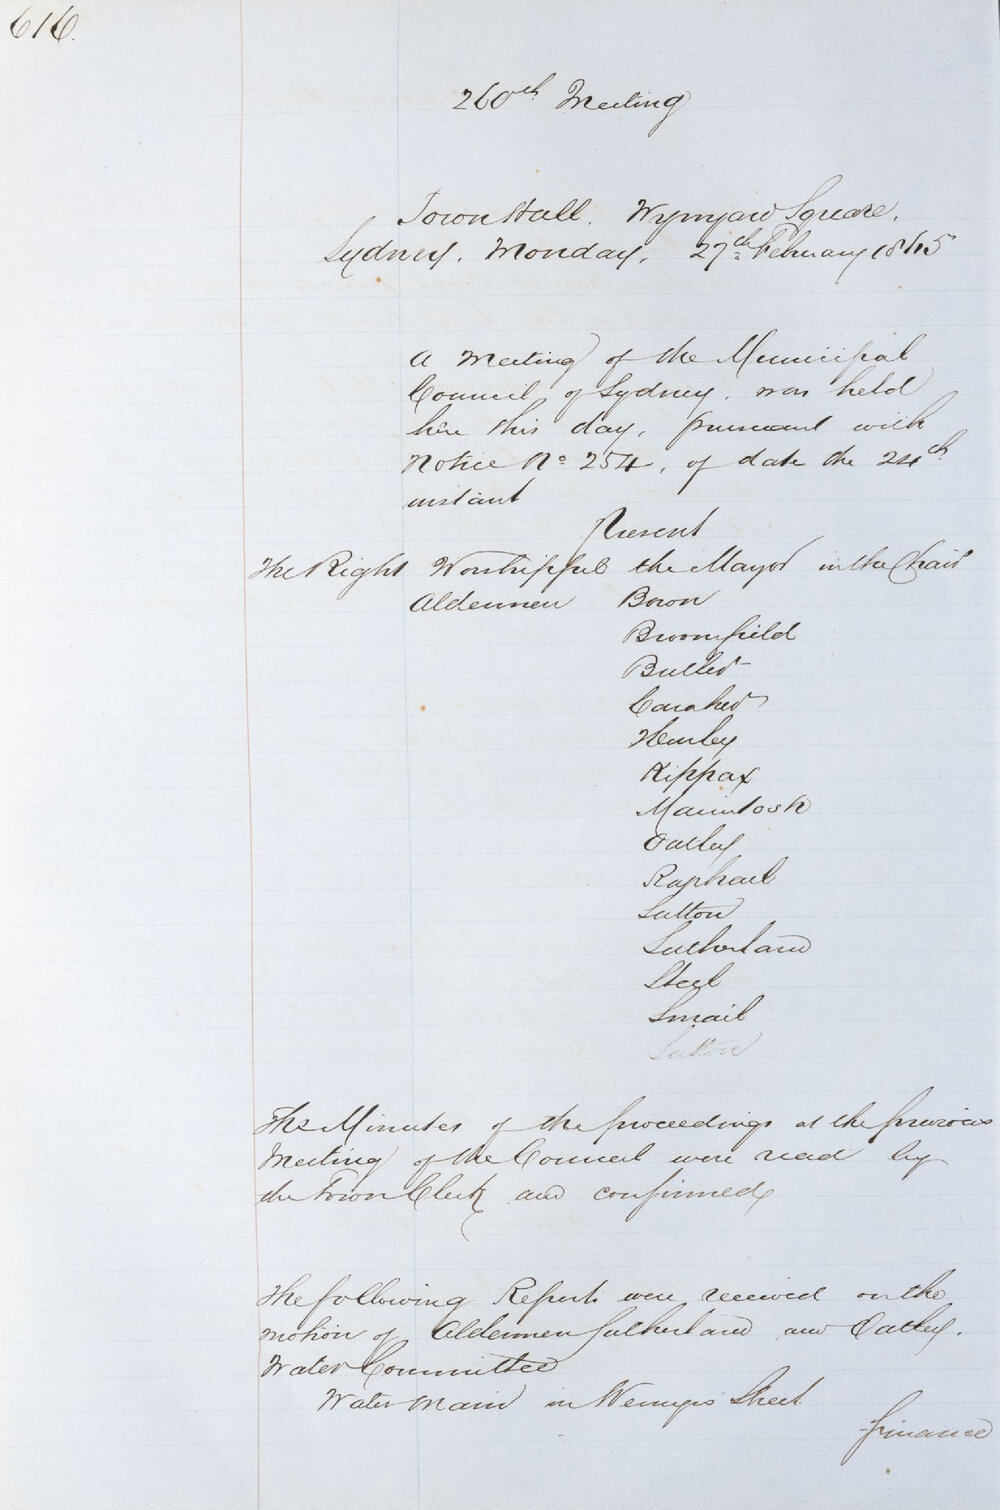 616.
260th Meeting
Town Hall. Wynyard Square.
Sydney. Monday. 27th February 1865
A Meeting of the Municipal
Council of Sydney, was held
here this day, pursuant with
Notice No 254, of date the 24th
instant
Present
The Right Worshipful the Mayor in the Chair
Aldermen Bown
Broomfield
Butler
Caraher
Hurley
Kippax
Macintosh
Oatley
Raphael
Sutton
Sutherland
Steel
Smail
Sutton
The Minutes of the proceedings at the previous
Meeting of the Council were read by
the Town Clerk and confirmed
The following Reports were received on the
motion of Aldermen Sutherland and Oatley.
Water Committee
Water main in Wemyss Street
Finance